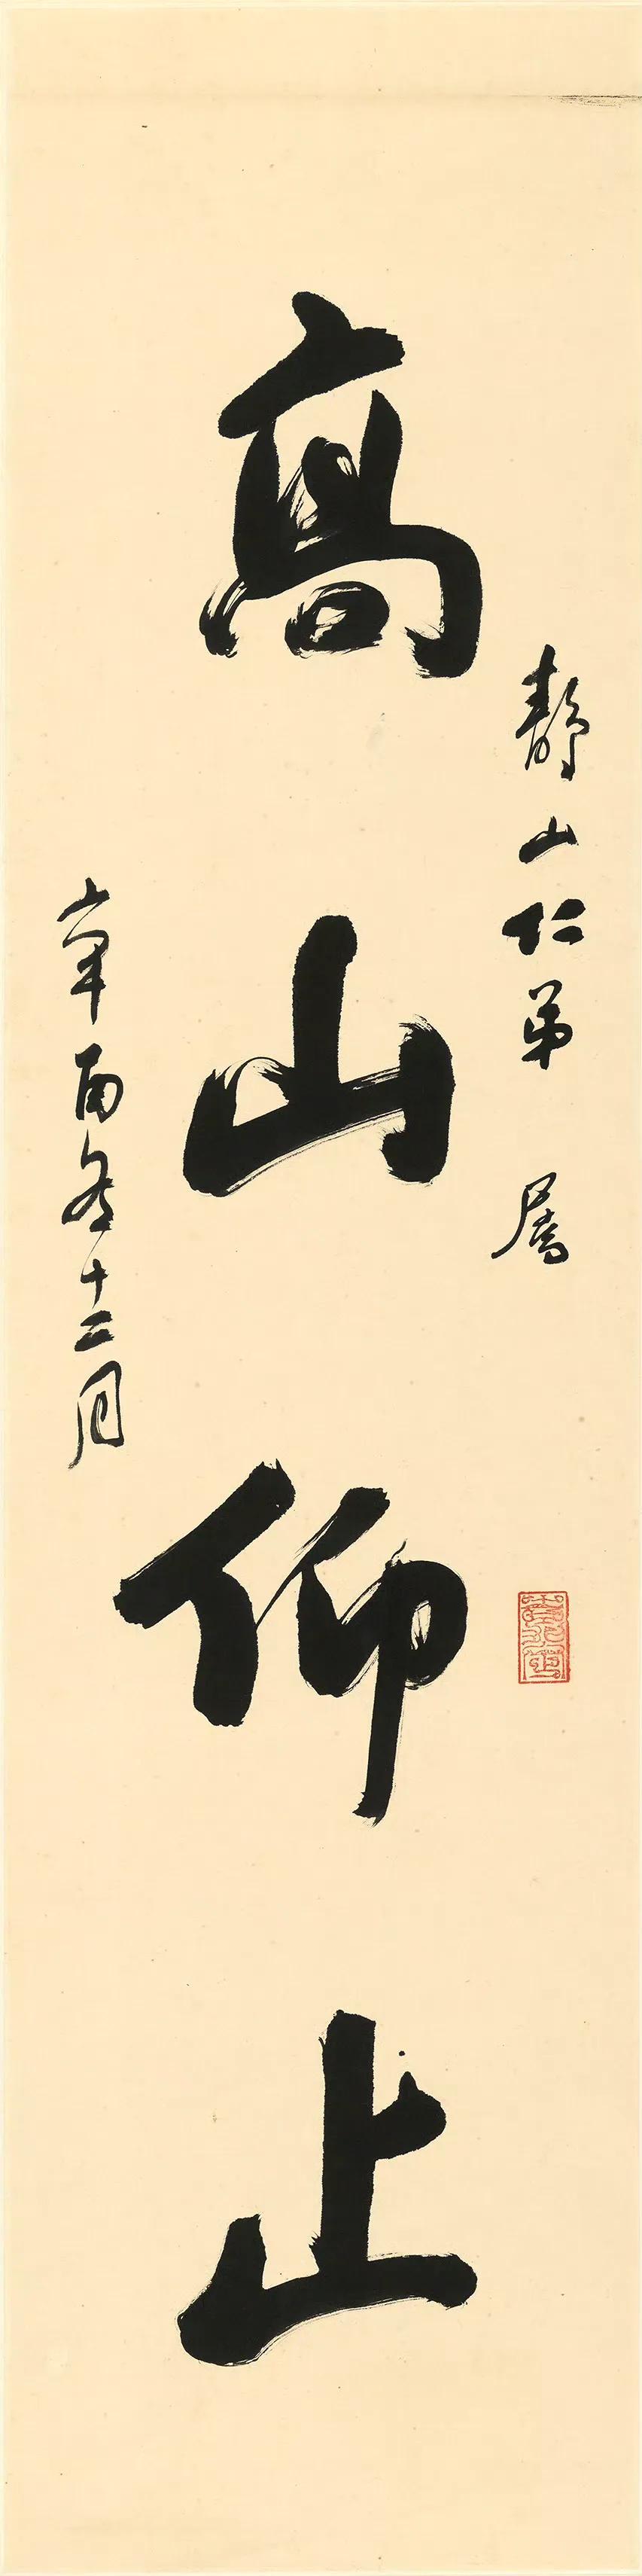 靜山仁弟 屬
高山仰止
辛酉冬十二月